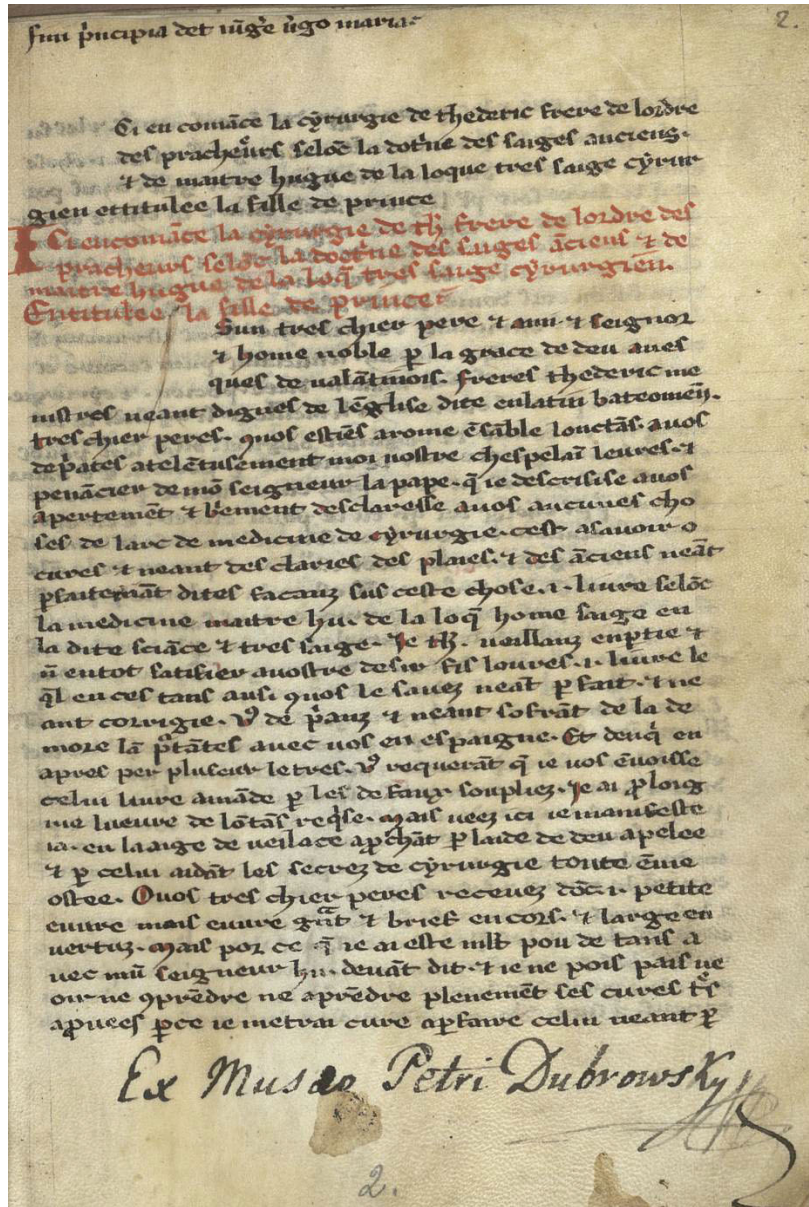 2.
sun prīcipia det iūgr̄e ūgo maria
Ci en comāce la cÿrurgie de thederic frere de lordre
des pracheurs selōc la dot'ne des saiges anciens.
⁊ de maitre hugue de la loque tres saige cÿrur
gien ettitulee la fille de prince
Ici encomāce la cÿrurgie de th. frere de lordre des
pracheurs selōc la doct'ne des saiges āciens ⁊ de
maitre hugue de la loq̄ tres saige cÿrurgien.
Entitulee la fille de prince
Sun tres chier pere ⁊ ami ⁊ seignor
⁊ home noble p̱ la grace de deu aves
ques de valantinois. freres thederic me
nistres neant dignes de lēglise dite enlatin
tres chier peres. quos estiēs arome ēsāble lonctās. avos
de p̄ates atelētusement moi nostre chespelaī leures. ⁊
penācier de mō seigneur la pape. q̄ ie descrisise avos
apertemēt ⁊ bēment desclaresse avos aucunes cho
ses de larc de medicine de cÿrurgie. cest asavoir o
cures ⁊ neant desclaries des plaies. ⁊ des āciens neāt
p̱faitemāt dites facanz sus ceste chose .i. livre selōc
la medicine maitre hu. de la loq̄ home saige en
la dite sciāce ⁊ tres saige. Je th. veillanz enp̱tie ⁊
n̄ entot satifier avostre desir fis loures .i. livre le
q̄l en ces tans ausi quos le savez neāt p̱fait. ⁊ ne
ant corrigie. de p̄anz ⁊ neant sofrāt de la de
more lā avec vos en espaigne. Et deuq̄ en
apres per pluseur letres. requerāt q̄ ie vos ēvoisse
celui livre amāde p̱ les defaux soupliez. Je ai p̱loig
me lueure de lōtās reqīse. Mais veez ici ie manifeste
ia. en laaige de veilace ap̱chāt p̱ laide de deu apelee
⁊ p̱ celui aidāt les secrez de cÿrurgie toute ēvie
ostee. Quos tres chier peres recevez dōc .i. petite
euvre mais euvre ḡnt ⁊ brief en cors. ⁊ large en
vertuz. Mais por ce q̄ ie ai este mlt pou de tans a
vec mū seigneur hu. devāt dit. ⁊ ie ne pois pais ve
oir ne ꝯprēdre ne aprēdre plenemēt ses cures
ap̱vees p̱ce ie metrai cure ap̱faire celui neant p̱
Ex Museo Petri Dubrowsky
2.